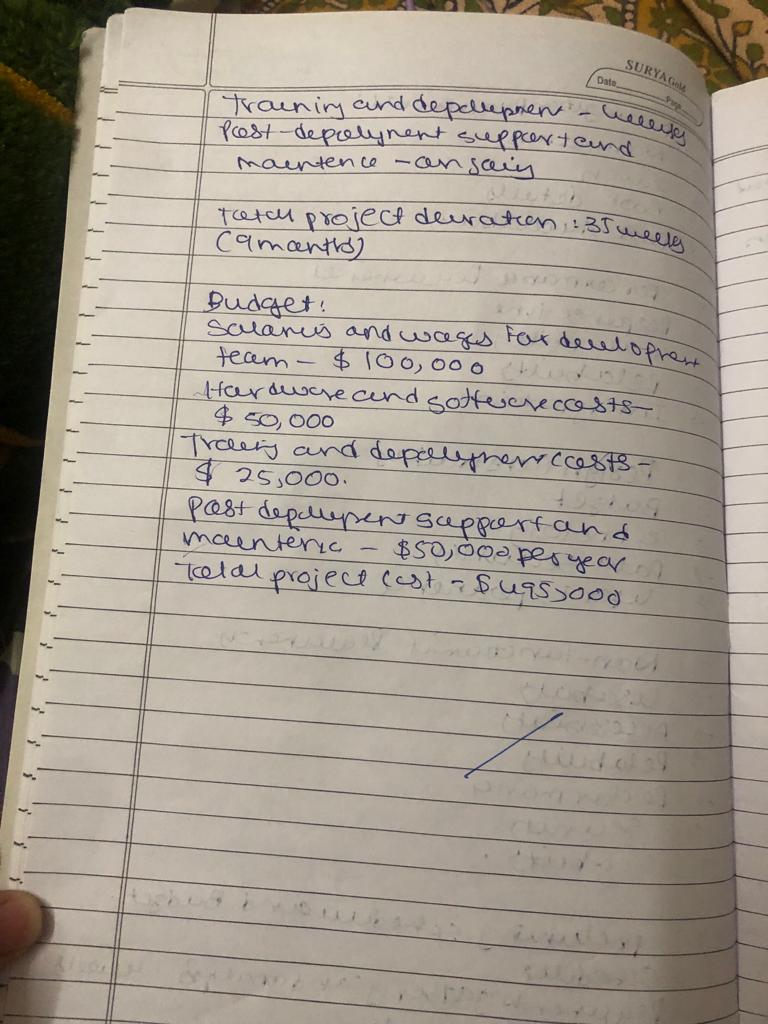 SURYA Gold
Date Page
Training and depolupment - weeks
Post-depolynent support and
maintence - on going
Total project duration : 35 weeks
(9 months)
Budget:
Salaries and wages for development
team - $ 100,000
Hardware and software costs -
$ 50,000
Training and depolyment costs -
$ 25,000.
Post depolupment support and
maintenic - $50,000 per year
Total project cost - $495,000